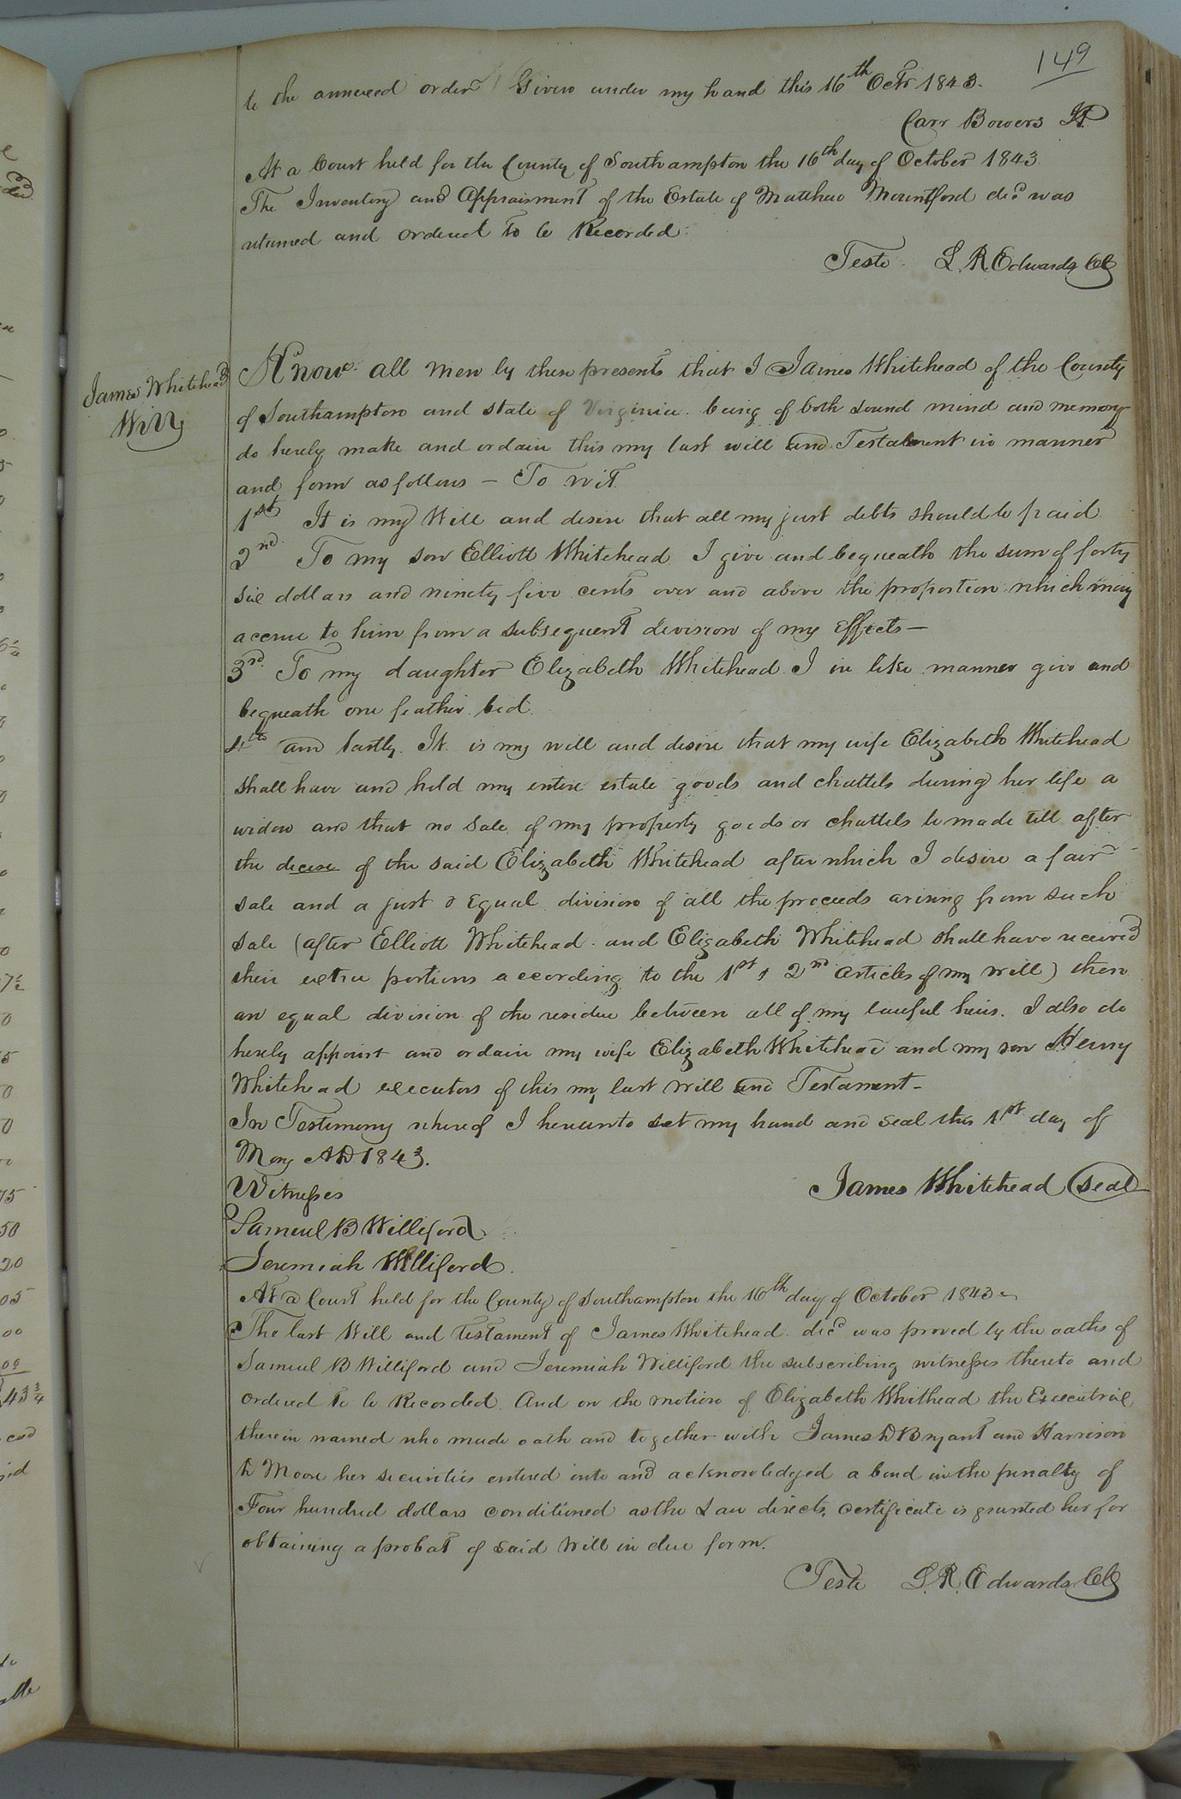 149
to the annexed order Given under my hand this 16th Octr 1843.
Carr Bowers JP
At a Court held for the County of Southampton the 16th day of October 1843
The Inventory and Appraisment of the Estate of Matthew Mountford decd was
returned and ordered to be Recorded.
Teste L. R. Edwards CC
James Whitehead
Will
Know all men by these presents that I James Whitehead of the County
of Southampton and state of Virginia being of both sound mind and memory
do hereby make and ordain this my last will and Testament in manner
and form as follows — To wit
1st It is my Will and desire that all my just debts should be paid
2nd To my son Elliott Whitehead I give and bequeath the sum of forty
six dollars and ninety five cents over and above the proportion which may
accrue to him from a subsequent division of my effects —
3rd To my daughter Elizabeth Whitehead I in like manner give and
bequeath one feather bed
4th and lastly. It is my will and desire that my wife Elizabeth Whitehead
shall have and hold my entire estate goods and chattels during her life a
widow and that no sale of my property goods or chattels be made till after
the decese of the said Elizabeth Whitehead after which I desire a fair
sale and a just & Equal division of all the proceeds arising from such
sale (after Elliott Whitehead and Elizabeth Whitehead shall have received
their extra portions according to the 1st & 2nd articles of my will) then
an equal division of the residue between all of my lawful heirs. I also do
hereby appoint and ordain my wife Elizabeth Whitehead and my son Henry
Whitehead executors of this my last will and Testament —
In Testimony whereof I hereunto set my hand and seal this 1st day of
May AD 1843.
James Whitehead Seal
Witnesses
Samuel B Williford
Jeremiah Williford.
At a Court held for the County of Southampton the 16th day of October 1843
The last Will and testament of James Whitehead decd was proved by the oaths of
Samuel B Williford and Jeremiah Williford the subscribing witnesses thereto and
ordered to be Recorded. And on the motion of Elizabeth Whithead the Executrix
therein named who made oath and together with James D Bryant and Harrison
D Moore her securities entered into and acknowledged a bond in the penalty of
Four hundred dollars conditioned as the Law directs, certificate is granted her for
obtaining a probat of said Will in due form.
Teste L. R. Edwards CC